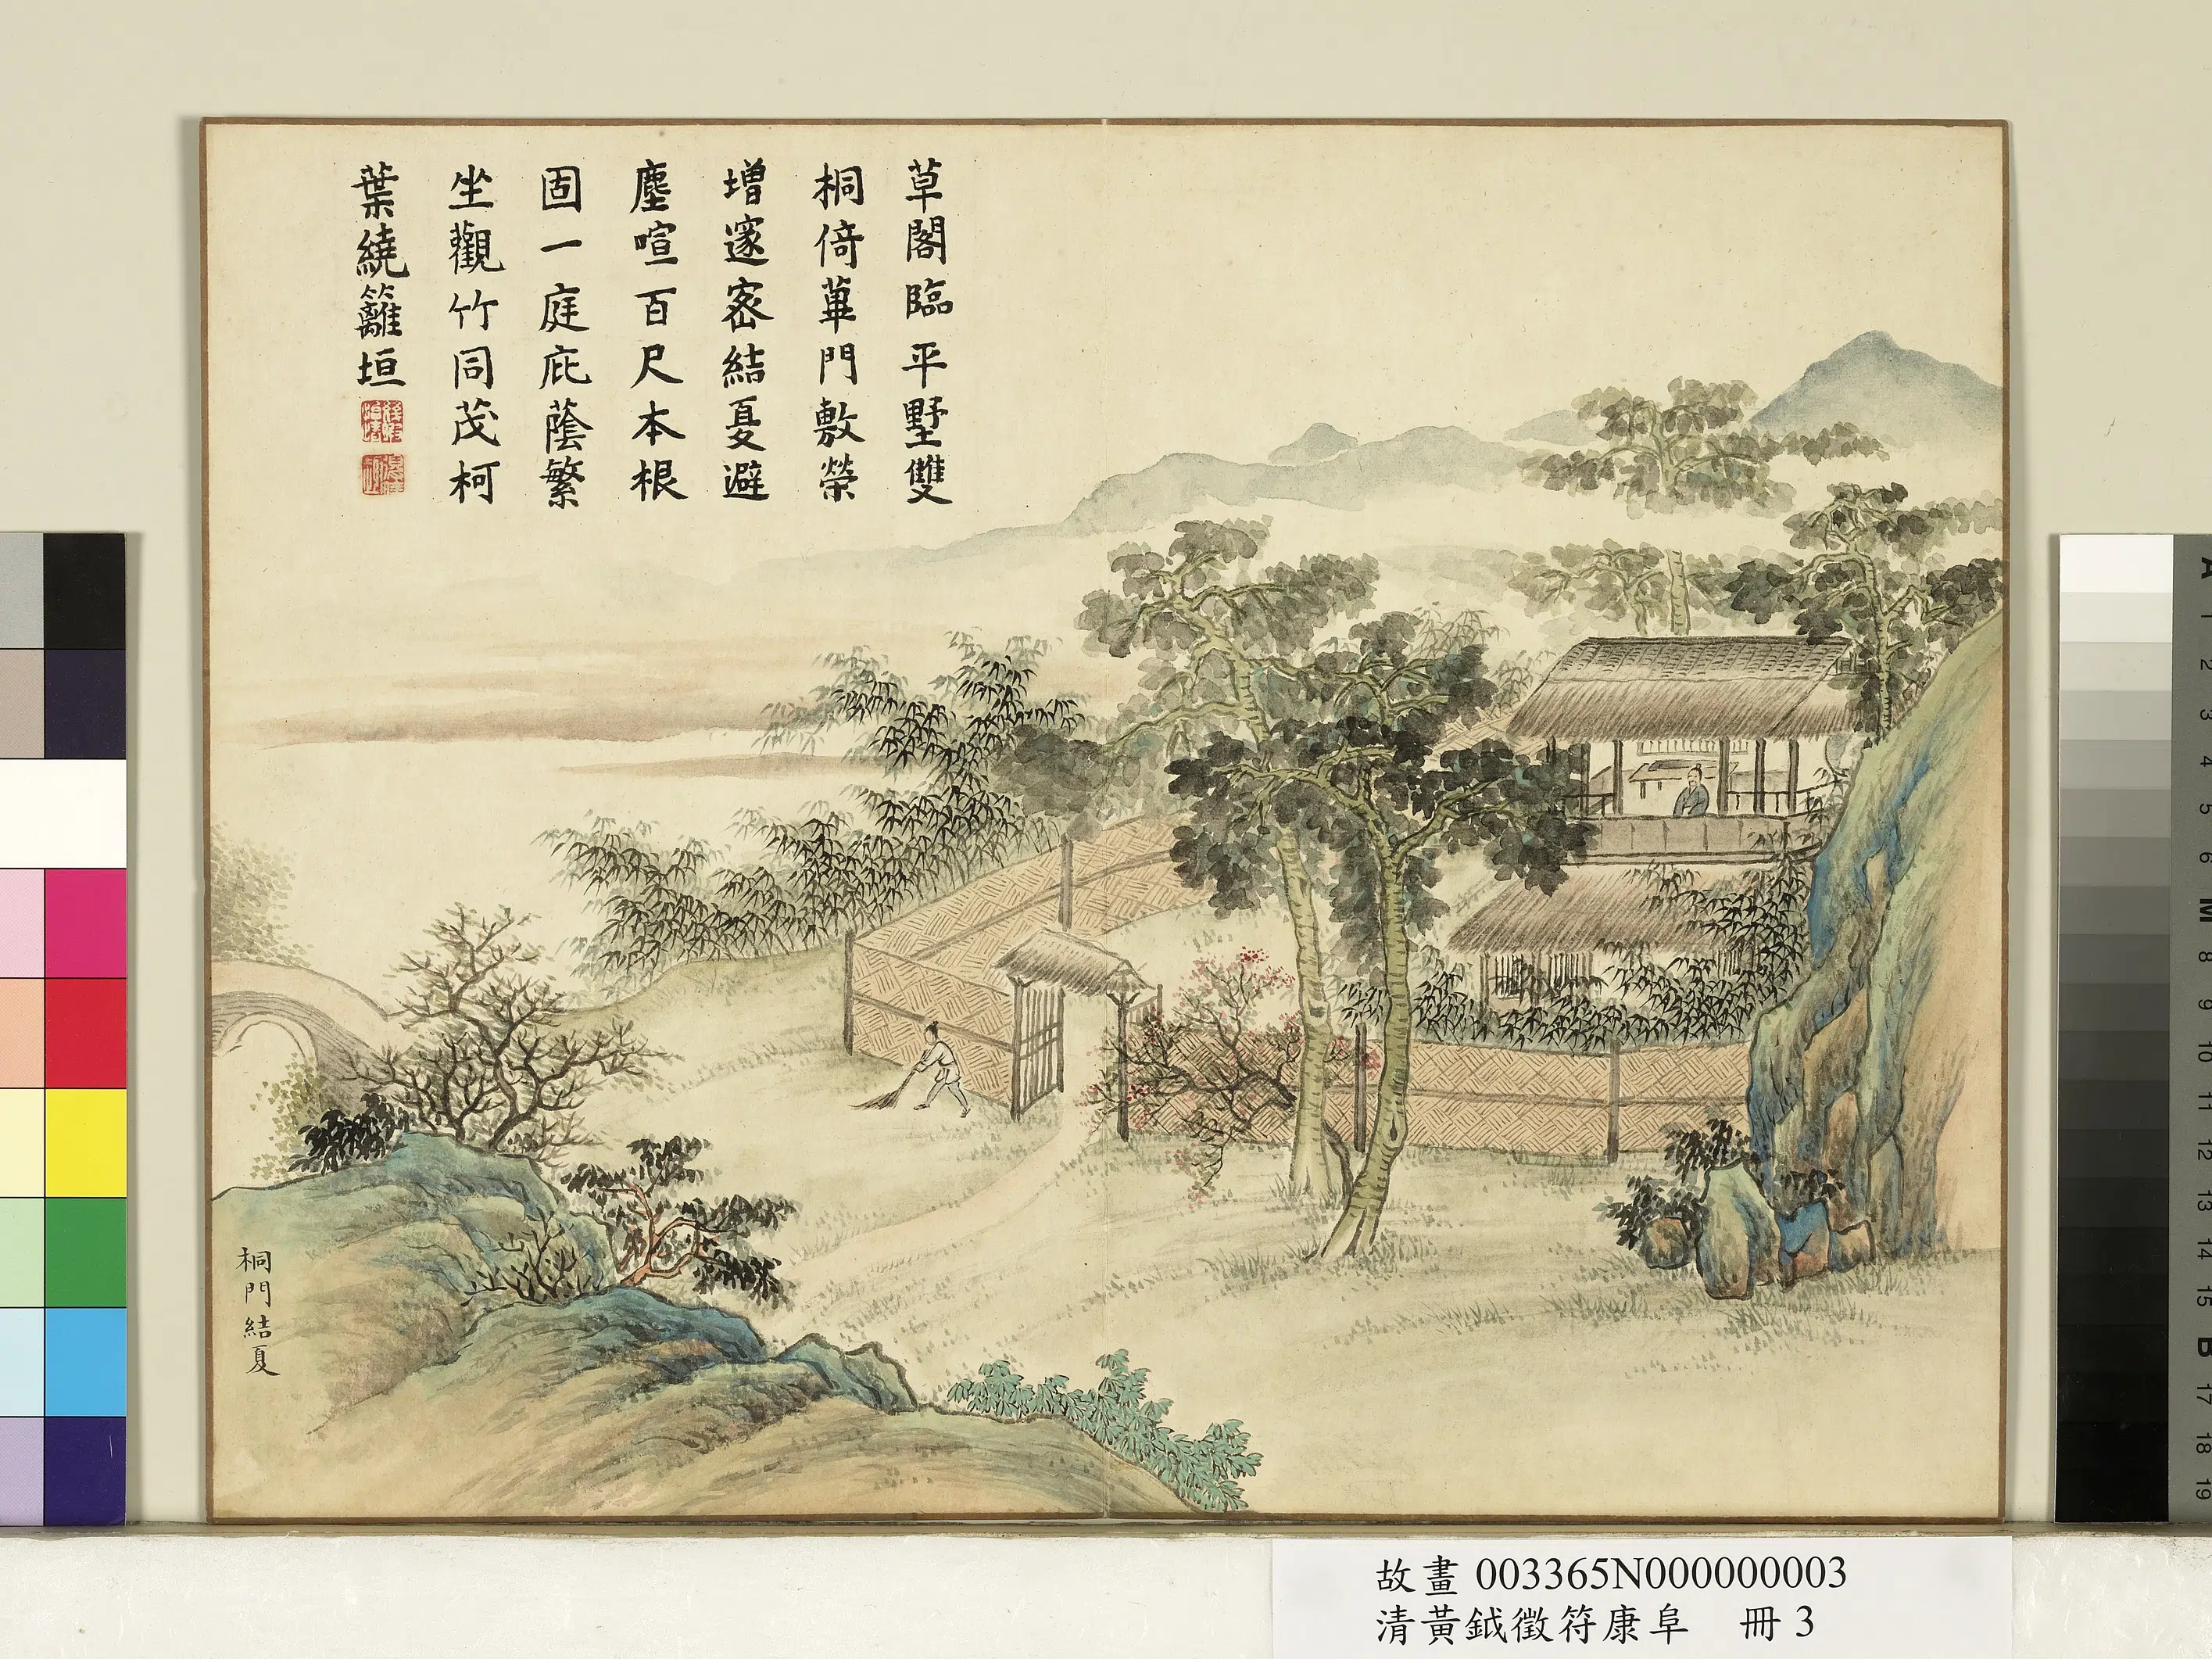 草閣臨平墅雙
桐倚蓽門敷榮
增邃密結夏避
塵喧百尺本根
固一庭庇蔭繁
坐觀竹同茂柯
葉繞籬垣
桐門結夏
故畫 003365N000000003
清黃鉞徵符康阜 冊 3
A
1
2
3
4
5
6
M
8
9
10
11
12
13
14
15
B
17
18
19